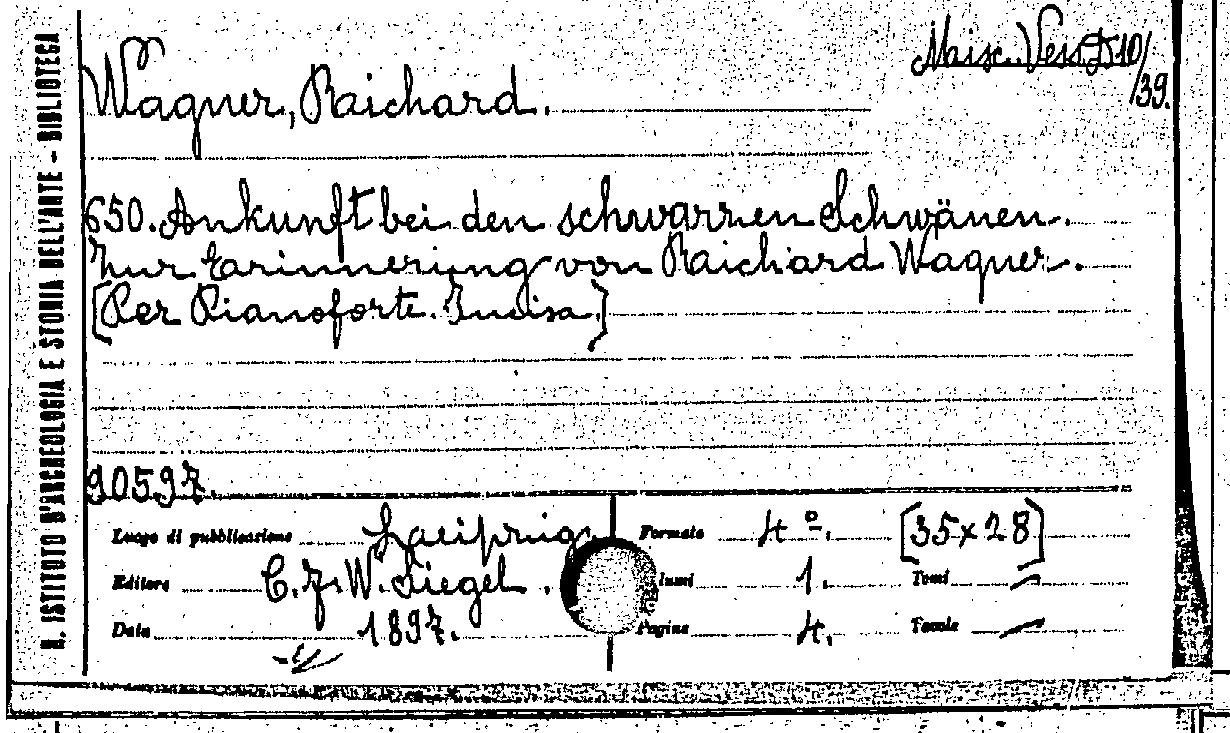 R. ISTITUTO D'ARCHEOLOGIA E STORIA DELL'ARTE - BIBLIOTECA
Misc. Vess. D 10/39.
Wagner, Raichard.
650. Ankunft bei den schwarzen Schwänen.
Zur Earinnerung von Raichard Wagner.
[Per Pianoforte. Incisa.]
90597.
Luogo di pubblicazione Laeipzig Formato 4º. [35x28]
Editore C. F. W. Siegel. lumi 1. Tomi —
Data 1897. Pagine 4. Tavole —